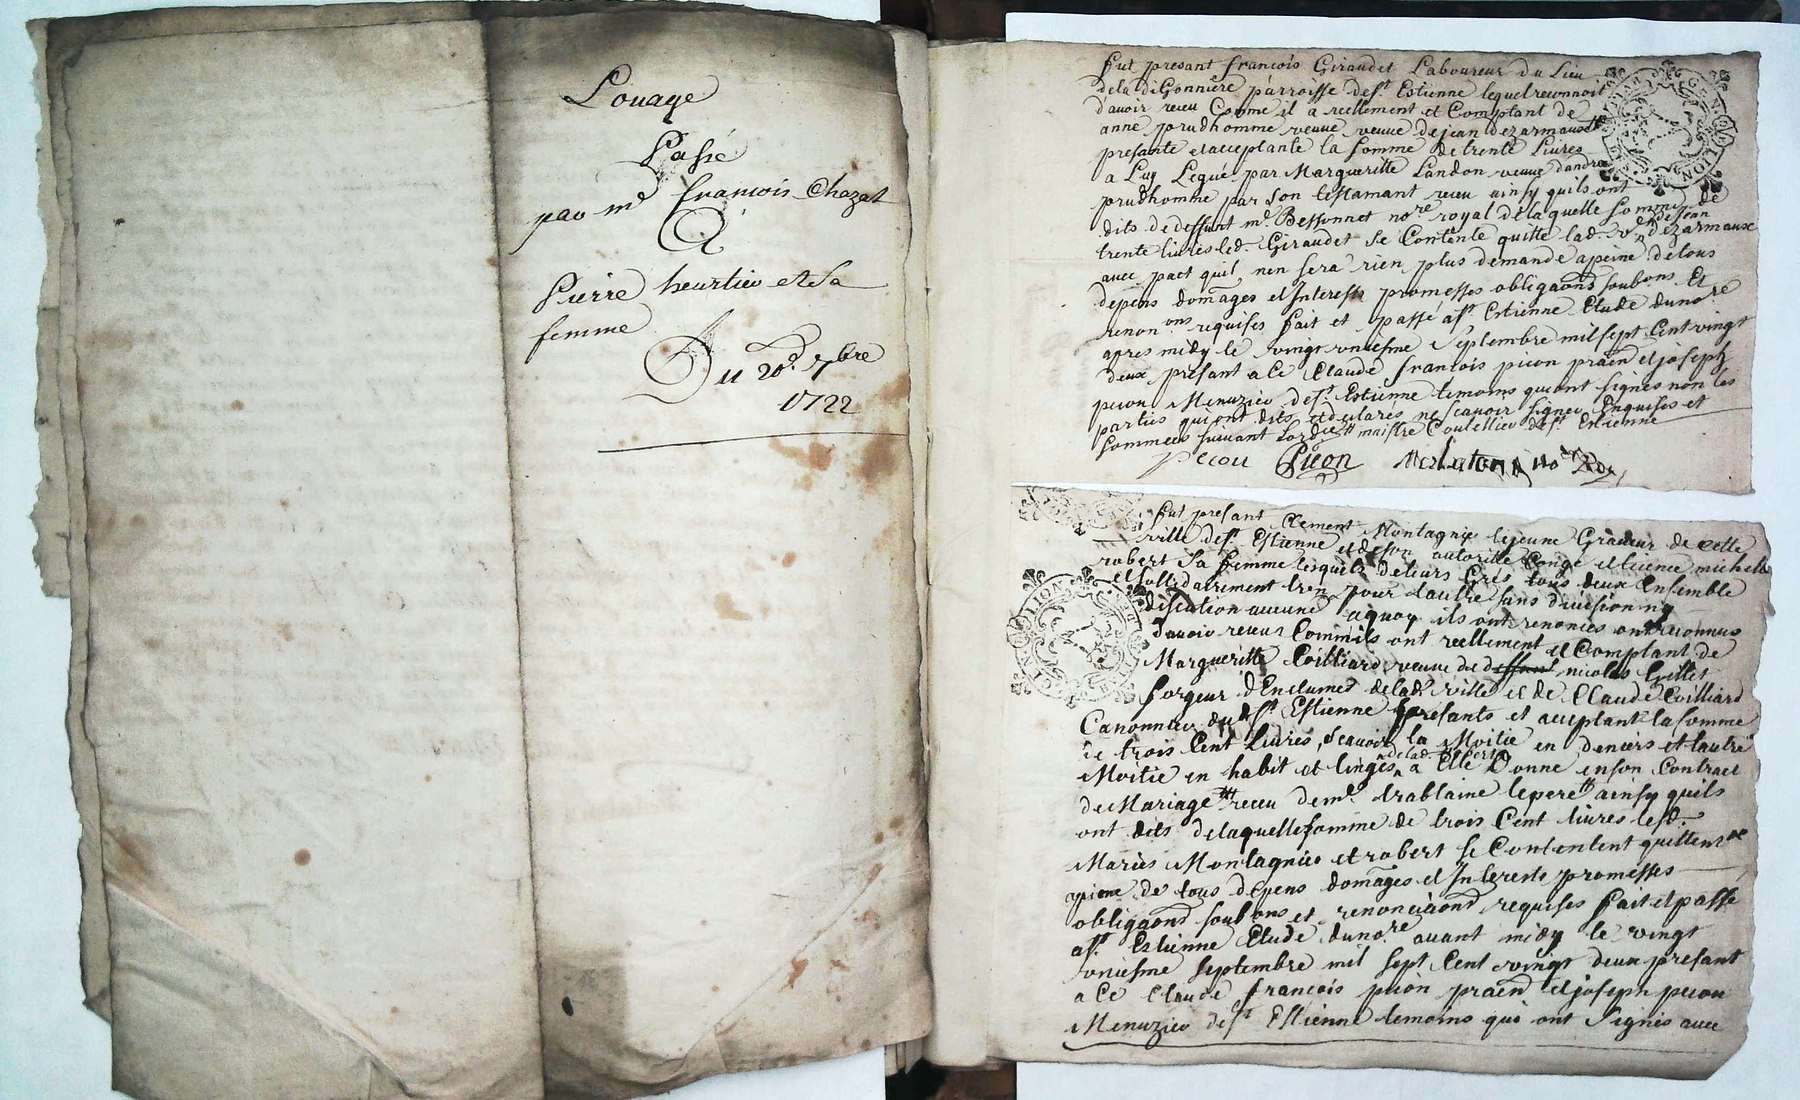 Louage
Passé
par mr François Chazat
A
Pierre heurtier et Sa
femme
Du 20e 7bre
1722
fut presant francois Giraudet Laboureur du Lieu
dela diGonnière parroisse de st Estienne lequel reconnoit
d'avoir receu Comme il a reellement et Comptant de
anne prudhomme veuve veuve de jean dezarmaux
presante et acceptante la somme de trente Livres
a Luy Legué par Margueritte Landon veuve dandre
prudhomme par son testamant receu ainsy quils ont
dits de deffunt mr Bessonnet nore royal de laquelle somme de
trente livres led. Giraudet se Contente quitte lad. ve de jean dezarmaux
avec pact quil nen sera rien plus demande apeine de tous
depens domages et Interests promesses obligaons soubons Et
renonons requises fait et passé a st Estienne Etude du nore
apres midy le vingt uniesme Septembre mil sept Cent vingt
deux presant a Ce Claude francois picon praen et joseph
picon Menuzier de st Estienne temoins qui ont signés non les
parties qui ont dits et declares ne scavoir signer Enquises et
sommees suivant Lord maistre Coutellier de st Estienne
Picon Picon nore
fut presant Clement Montagnier lejeune Graveur de cette
ville de st Estienne et de son autorité Congé et licence michelle
robert Sa femme lesquels de leurs Grés tous deux Ensemble
et sollidairement l'un pour l'autre sans division ny
discution aucune aquoy ils ont renoncés ont reconnus
d'avoir receus Comm'ils ont reellement et Comptant de
Margueritte Coilliard veuve de deffunt nicolas Gillet
forgeur d'Enclumes de lad. ville et de Claude Coilliard
Canonnier du d. st Estienne presants et acceptant la somme
de trois Cent Livres, scavoir la Moitie en deniers et lautre
Moitie en habit et linges a Elle Donne en son Contract
de lad. robert
de Mariage receu de mr trablaine le pere ainsy quils
ont dits de laquelle somme de trois Cent livres lesd.
Mariés Montagnier et robert se Contentent quittent
apeine de tous depens domages et Interests promesses
obligaons soubons et renonciaons requises fait et passé
a st Estienne Etude du nore avant midy le vingt
uniesme septembre mil sept Cent vingt deux presant
a Ce Claude francois picon praen et joseph picon
Menuzier de st Estienne temoins qui ont signés avec